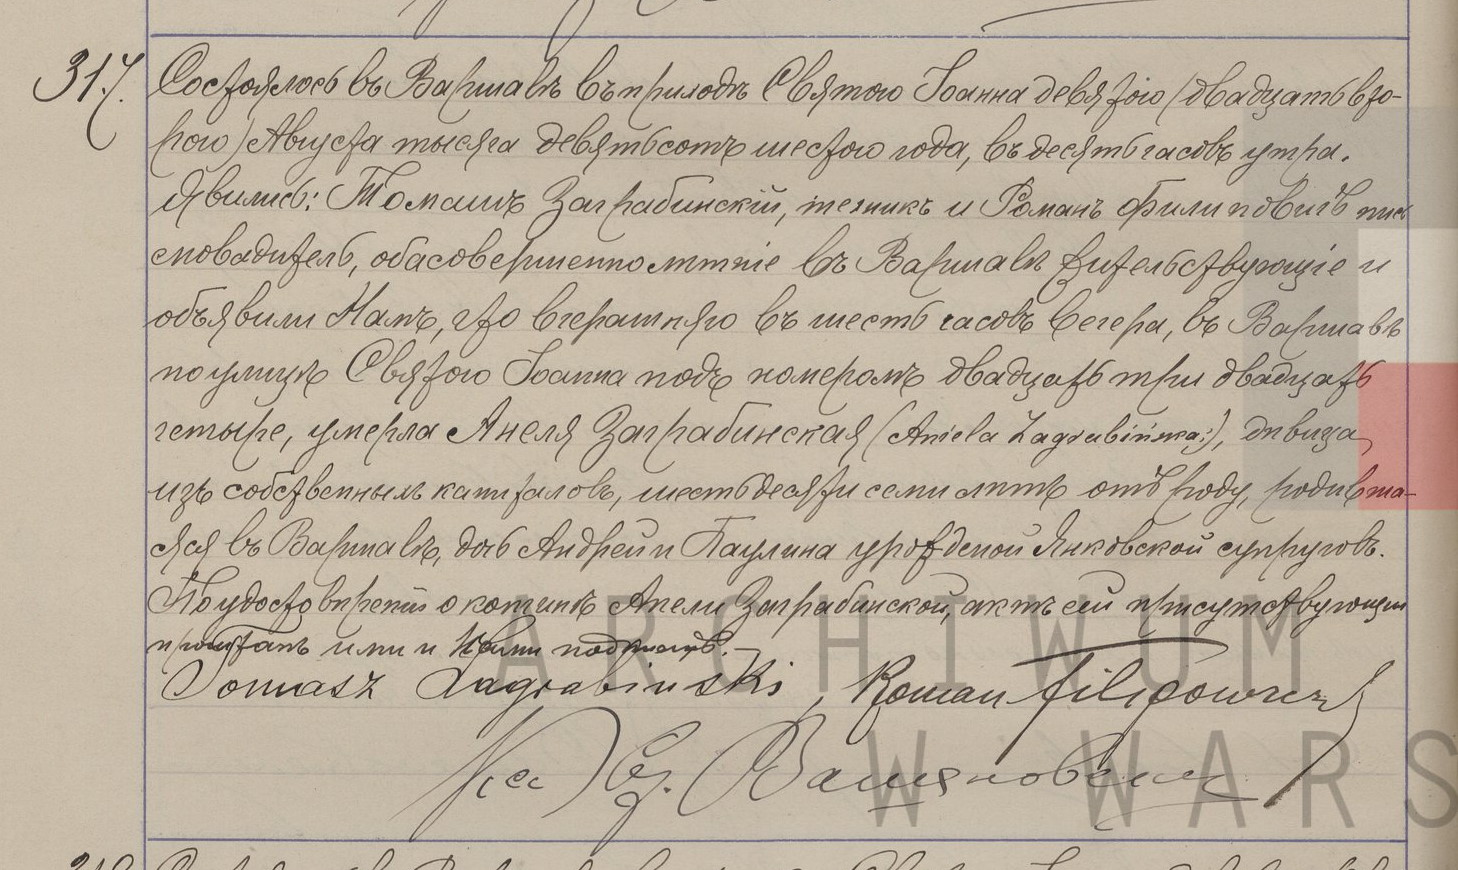 317. Состоялось въ Варшавѣ въ приходѣ Святого Іоанна девятого (двадцать вто-
рого) Августа тысяча девятьсотъ шестого года, въ десять часовъ утра.
Явились: Томашъ Заграбинскій, техникъ и Романъ Филиповичъ пись
моводитель, оба совершеннолѣтніе въ Варшавѣ жительствующіе и
объявили Намъ, что вчерашняго въ шесть часовъ вечера, въ Варшавѣ
по улицѣ Святого Іоанна подъ номеромъ двадцать три двадцать
четыре, умерла Анеля Заграбинская (Aniela Zagrabińska:), дѣвица
изъ собственныхъ капиталовъ, шестьдесяти семи лѣтъ отъ роду, родивша-
яся въ Варшавѣ, дочь Андрей и Паулина урожденой Янковской супруговъ.
По удостовѣреніи о кончинѣ Анели Заграбинской, актъ сей присутствующим
прочитанъ ими и Нами подписанъ.
Tomasz Zagrabinski, Roman Filipowicz
Кс.
318
ARCHIWUM
W WARS